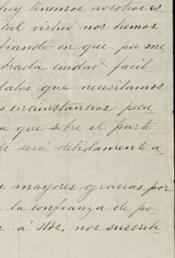 hoy tenemos nosotros es
tal virtud nos hemos
fiando en que por me
brada ciudad facil
datos que necesitamos
s circunstancias pecu
a que sobre el parte
será debidamente a
mayores gracias por
la confianza de po
r á Uds, nos suscribi